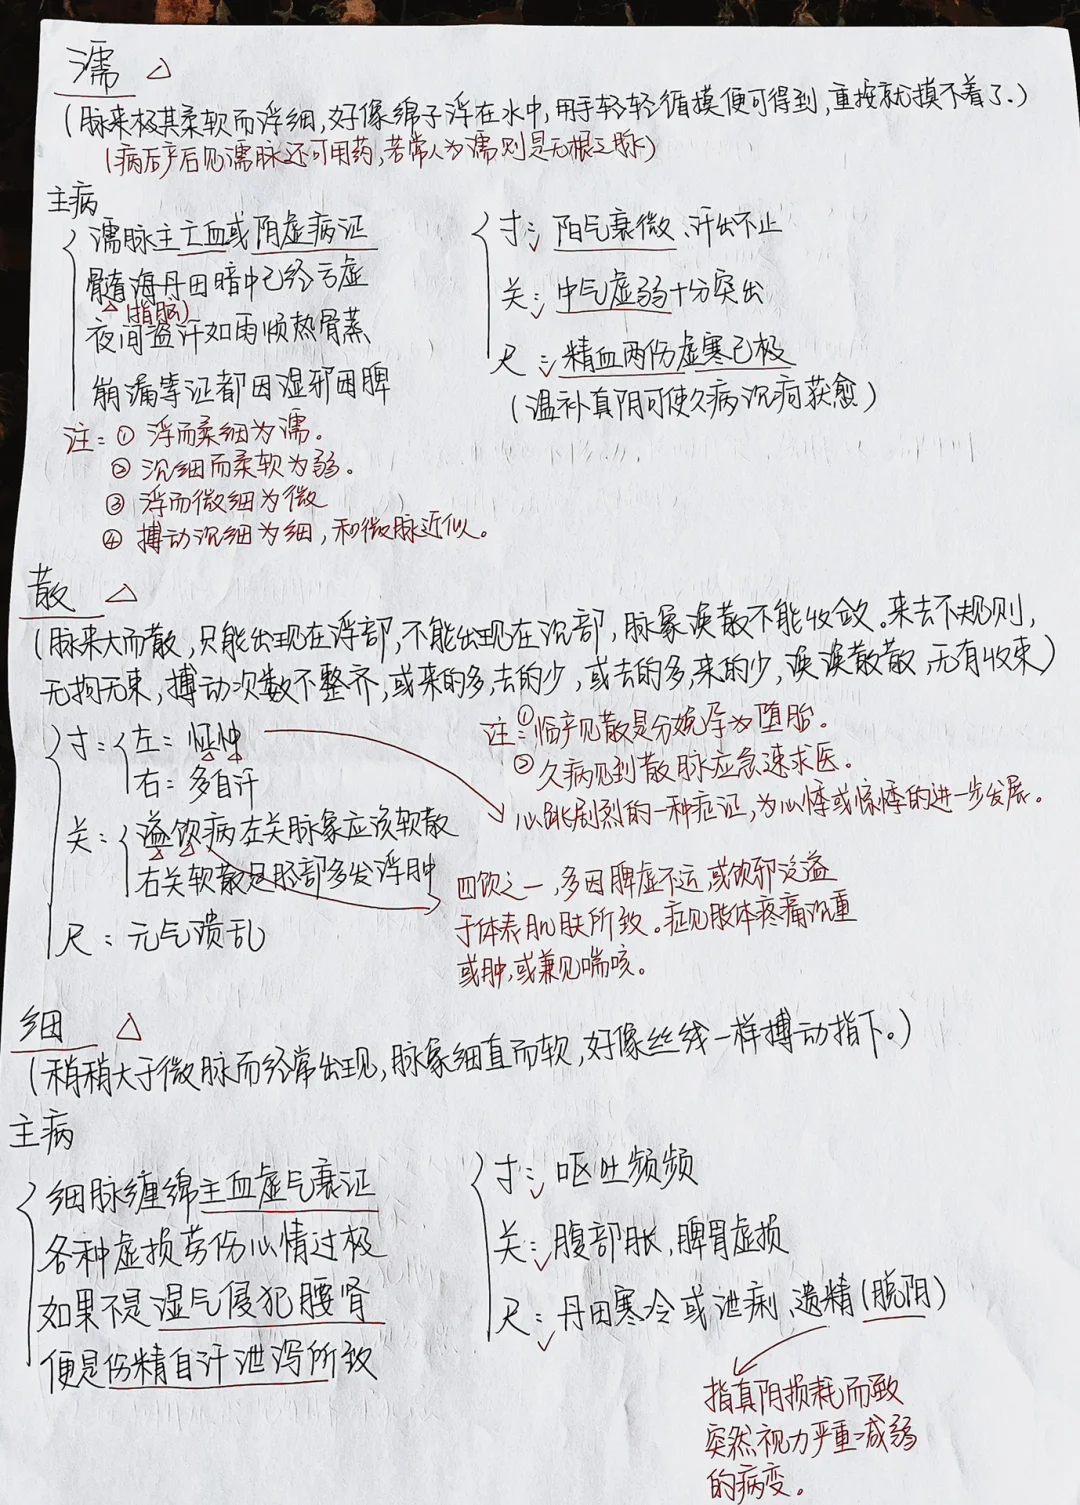 濡 △
(脉来极其柔软而浮细,好像绵子浮在水中,用手轻轻循摸便可得到,重按就摸不着了.)
(病后产后见濡脉还可用药,若常人为濡则是无根之脉)
主病
濡脉主亡血或阴虚病证
髓海丹田暗中已经亏虚
(指脑)
夜间盗汗如雨烦热骨蒸
崩漏等证都因湿邪困脾
寸: 阳气衰微、汗出不止
关: 中气虚弱十分突出
尺: 精血两伤虚寒已极
(温补真阴可使久病沉疴获愈)
注: ① 浮而柔细为濡。
② 沉细而柔软为弱。
③ 浮而微细为微
④ 搏动沉细为细,和微脉近似。
散 △
(脉来大而散,只能出现在浮部,不能出现在沉部,脉象涣散不能收敛。来去不规则,
无拘无束,搏动次数不整齐,或来的多,去的少,或去的多,来的少,涣涣散散,无有收束)
寸: 左: 怔忡
右: 多自汗
关: 溢饮病左关脉象应该软散
右关软散足胫部多发浮肿
尺: 元气溃乱
注: ① 临产见散是分娩孕为堕胎。
② 久病见到散脉应急速求医。
心跳剧烈的一种症证,为心悸或惊悸的进一步发展。
四饮之一,多因脾虚不运,或饮邪泛溢
于体表肌肤所致。症见肢体疼痛沉重
或肿,或兼见喘咳。
细 △
(稍稍大于微脉而经常出现,脉象细直而软,好像丝线一样搏动指下。)
主病
细脉缠绵主血虚气衰证
各种虚损劳伤心情过极
如果不是湿气侵犯腰肾
便是伤精自汗泄泻所致
寸: 呕吐频频
关: 腹部胀,脾胃虚损
尺: 丹田寒冷或泄痢、遗精(脱阴)
指真阴损耗而致
突然视力严重减弱
的病变。